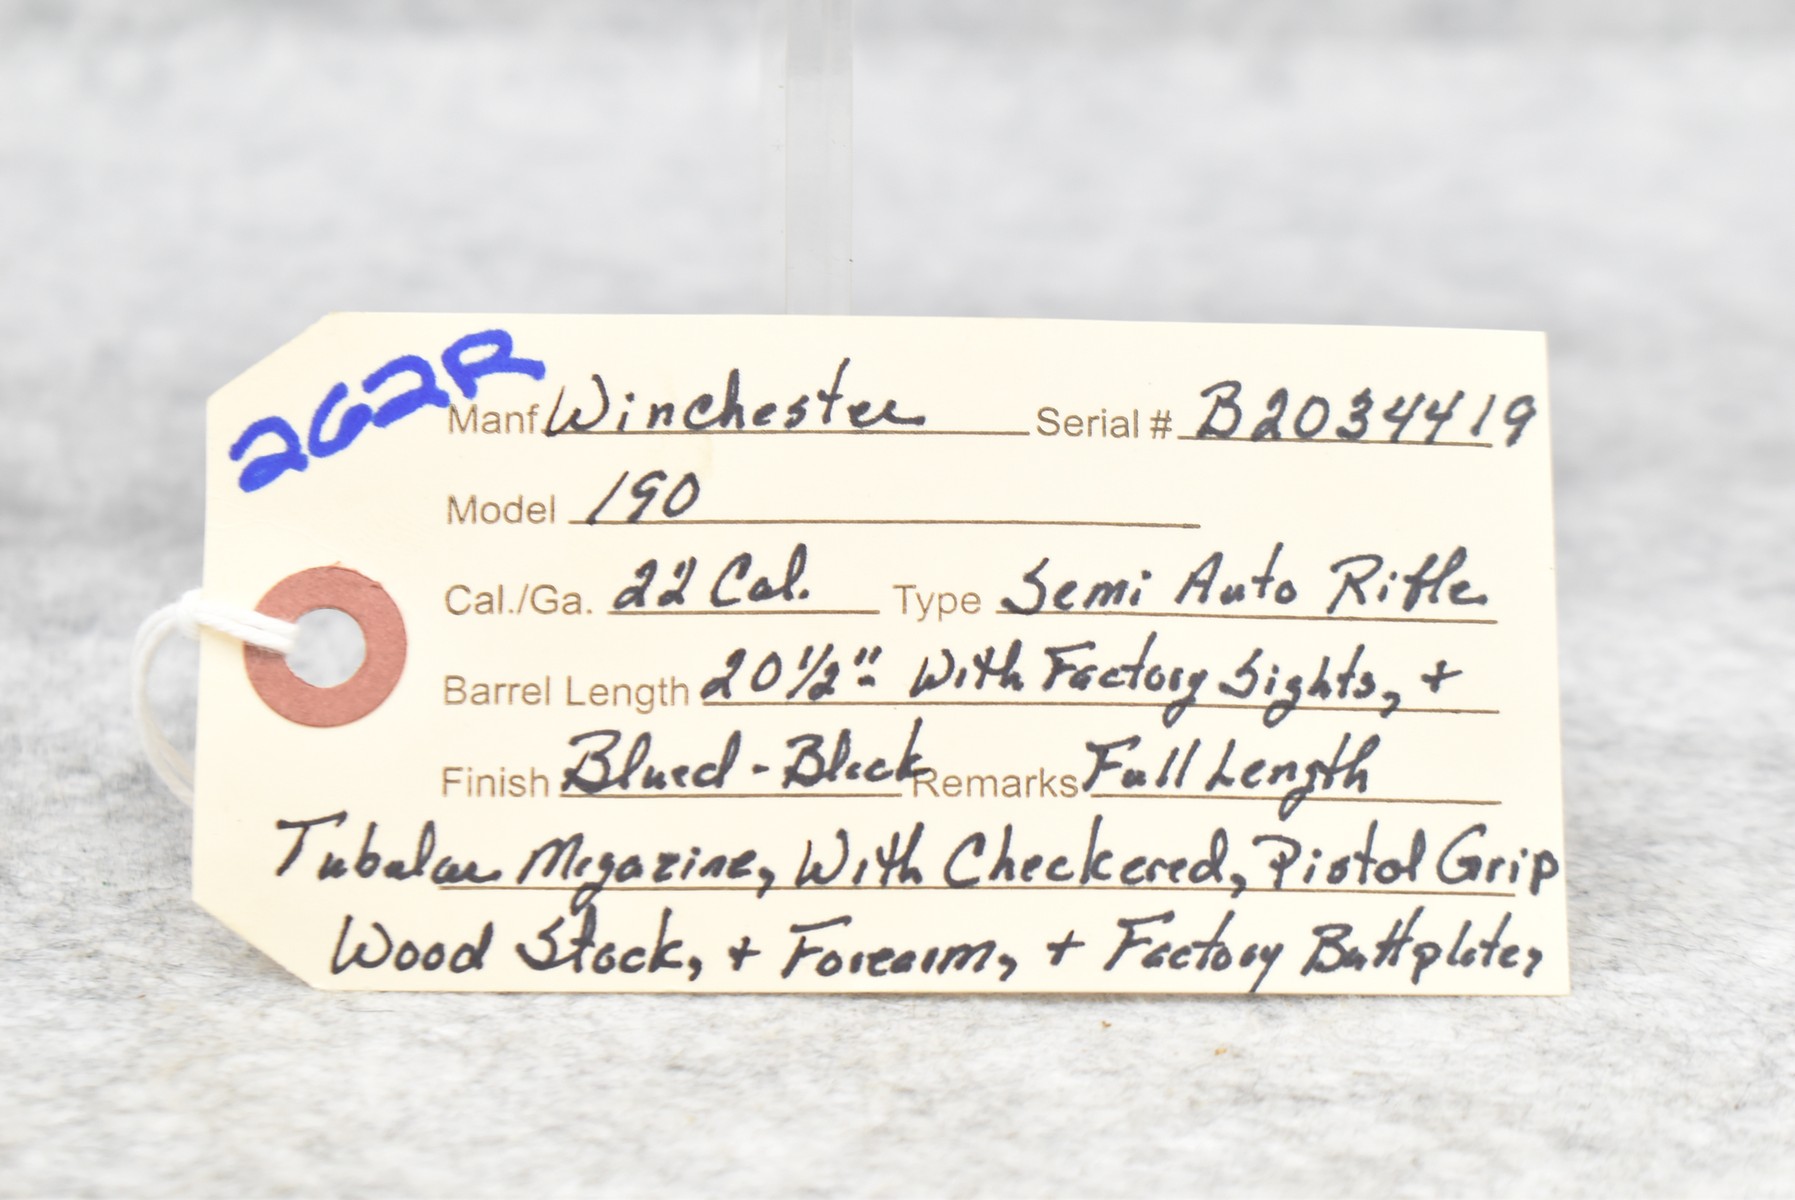 262R
Manf Winchester Serial # B2034419
Model 190
Cal./Ga. 22 Cal. Type Semi Auto Rifle
Barrel Length 20 1/2" With Factory Sights, +
Finish Blued - Black Remarks Full Length
Tubular Magazine, With Checkered, Pistol Grip
Wood Stock, + Forearm, + Factory Buttplate,